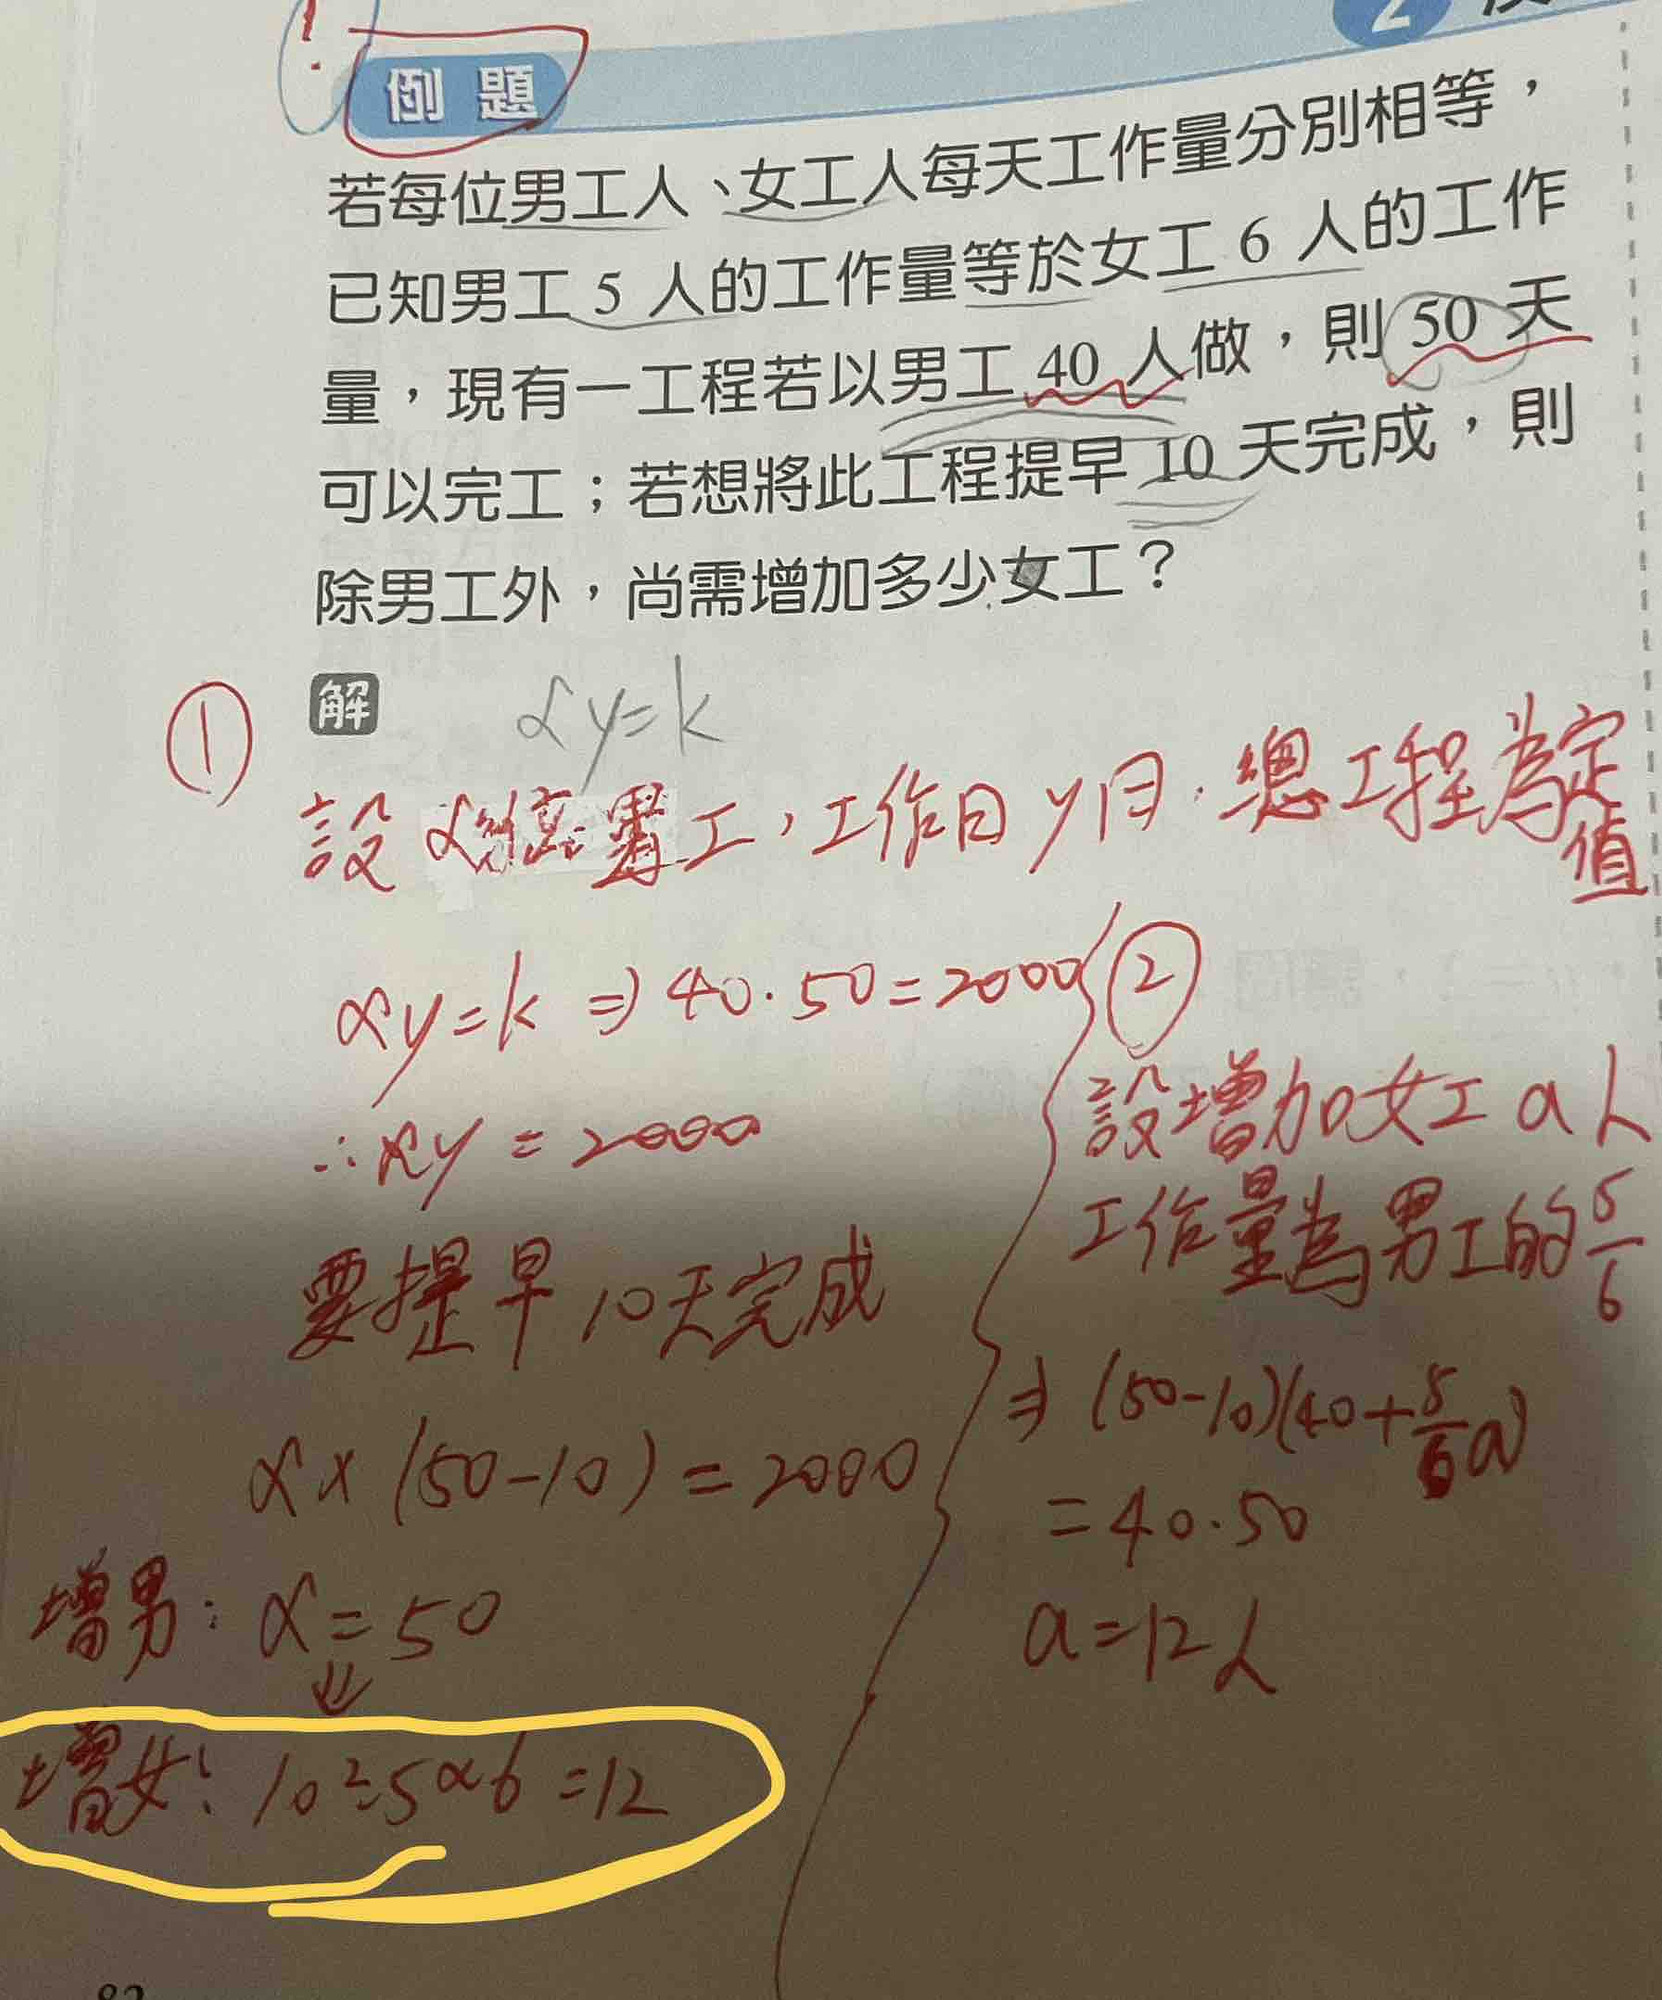 例題
若每位男工人、女工人每天工作量分別相等，
已知男工 5 人的工作量等於女工 6 人的工作
量，現有一工程若以男工 40 人做，則 50 天
可以完工；若想將此工程提早 10 天完成，則
除男工外，尚需增加多少女工？
① 解 xy=k
設 x 工，工作日 y 日．總工程為定值
xy=k ⇒ 40．50=2000
∴xy=2000
要提早10天完成
x×(50-10)=2000
增男：x=50
⇓
增女：10÷5×6=12
②
設增加女工a人
工作量為男工的5/6
⇒ (50-10)(40+5/6a)
=40．50
a=12人